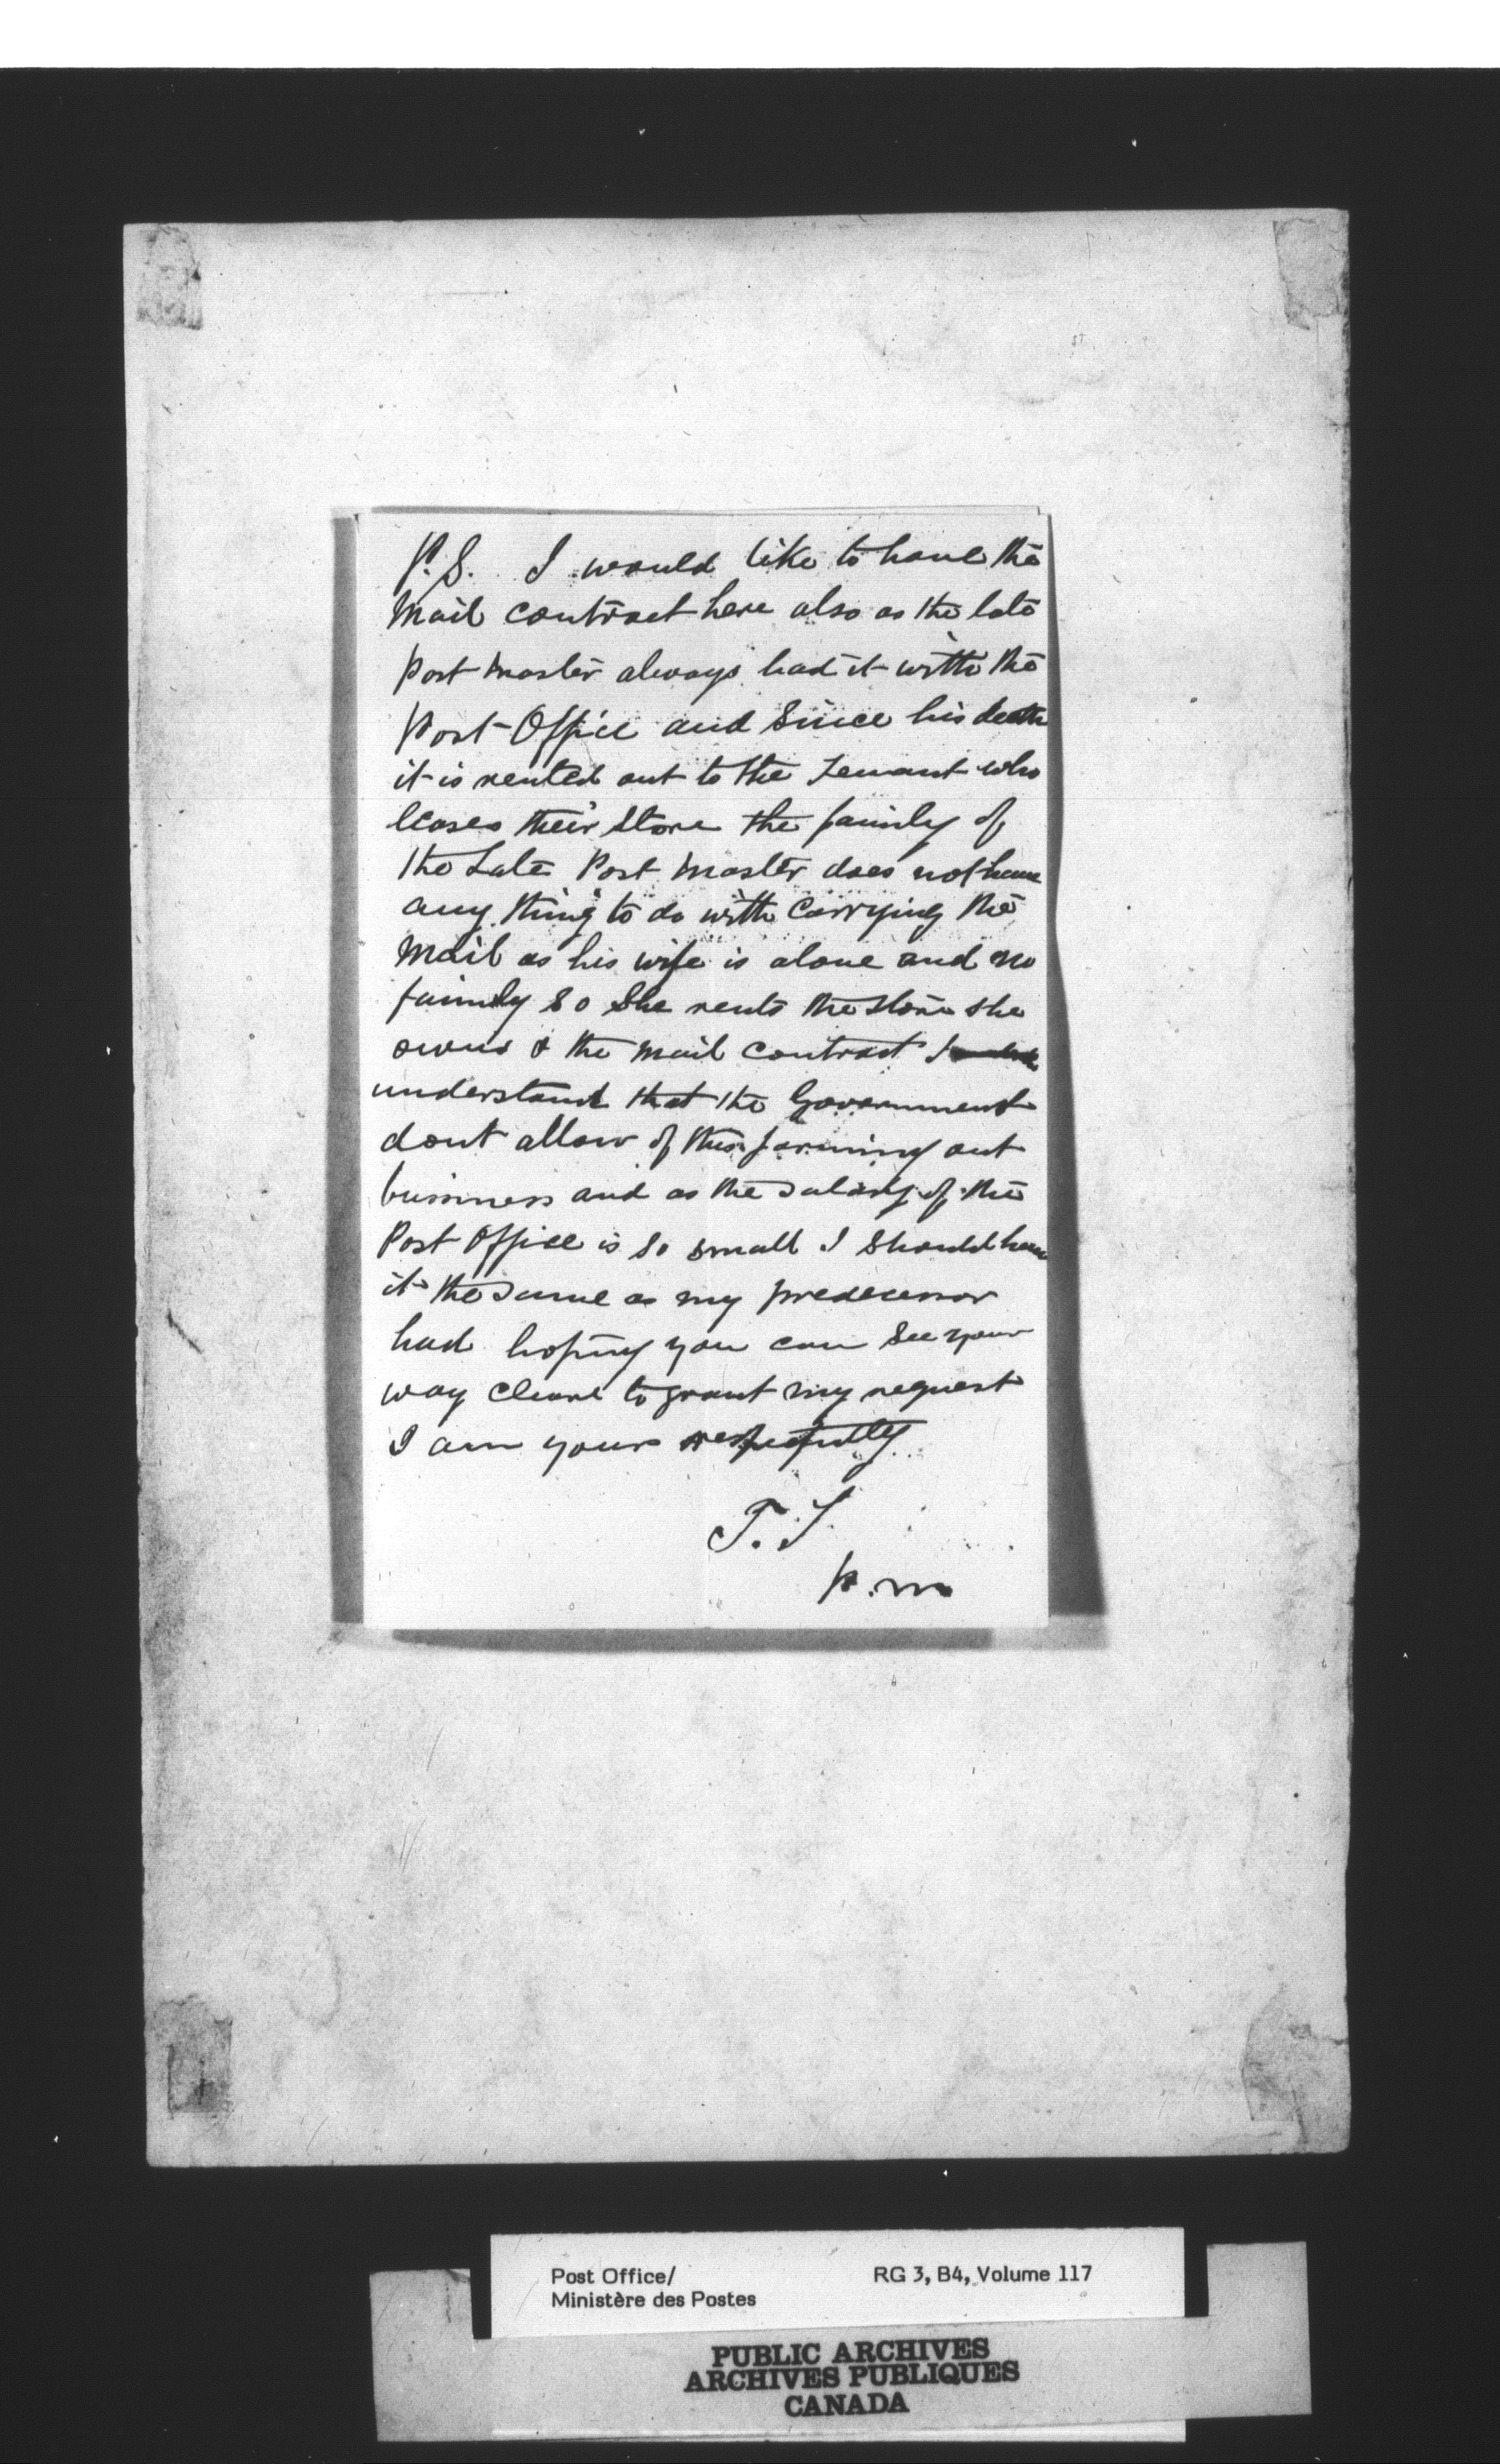 P.S. I would like to have the
Mail contract here also as the late
Post master always had it with the
Post-Office and since his death
it is rented out to the tenant who
leases their store the family of
the Late Post master does not have
any thing to do with carrying the
Mail as his wife is alone and no
family so she rents the store she
owns & the mail contract I
understand that the Government
dont allow of this farming out
buisness and as the salary of the
Post Office is so small I should have
it the same as my predecessor
had hoping you can see your
way cleare to grant my request
I am yours respectfully
T.
p.m
Post Office/ RG 3, B4, Volume 117
Ministère des Postes
PUBLIC ARCHIVES
ARCHIVES PUBLIQUES
CANADA